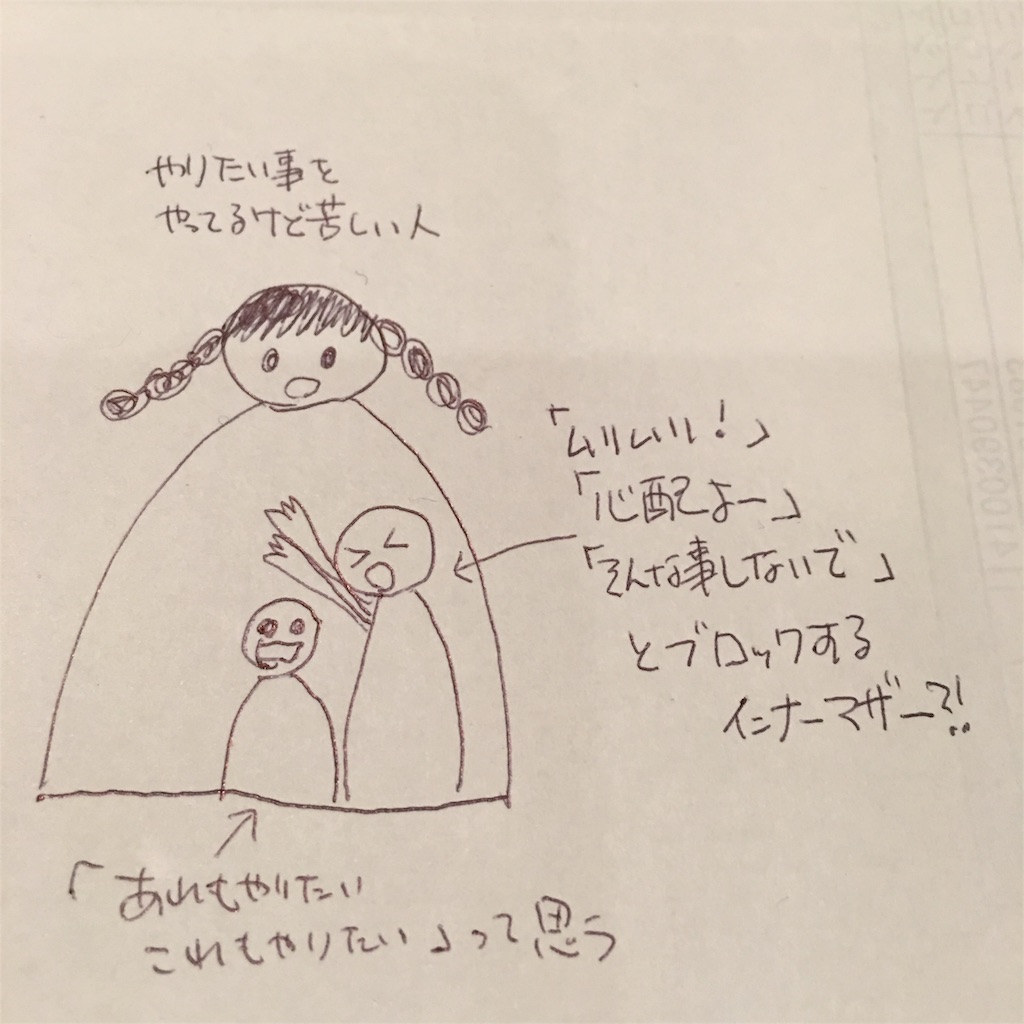 やりたい事を
やってるけど苦しい人
「ムリムリ！」
「心配よー」
「そんな事しないで」
とブロックする
インナーマザー?!
「あれもやりたい
これもやりたい」って思う